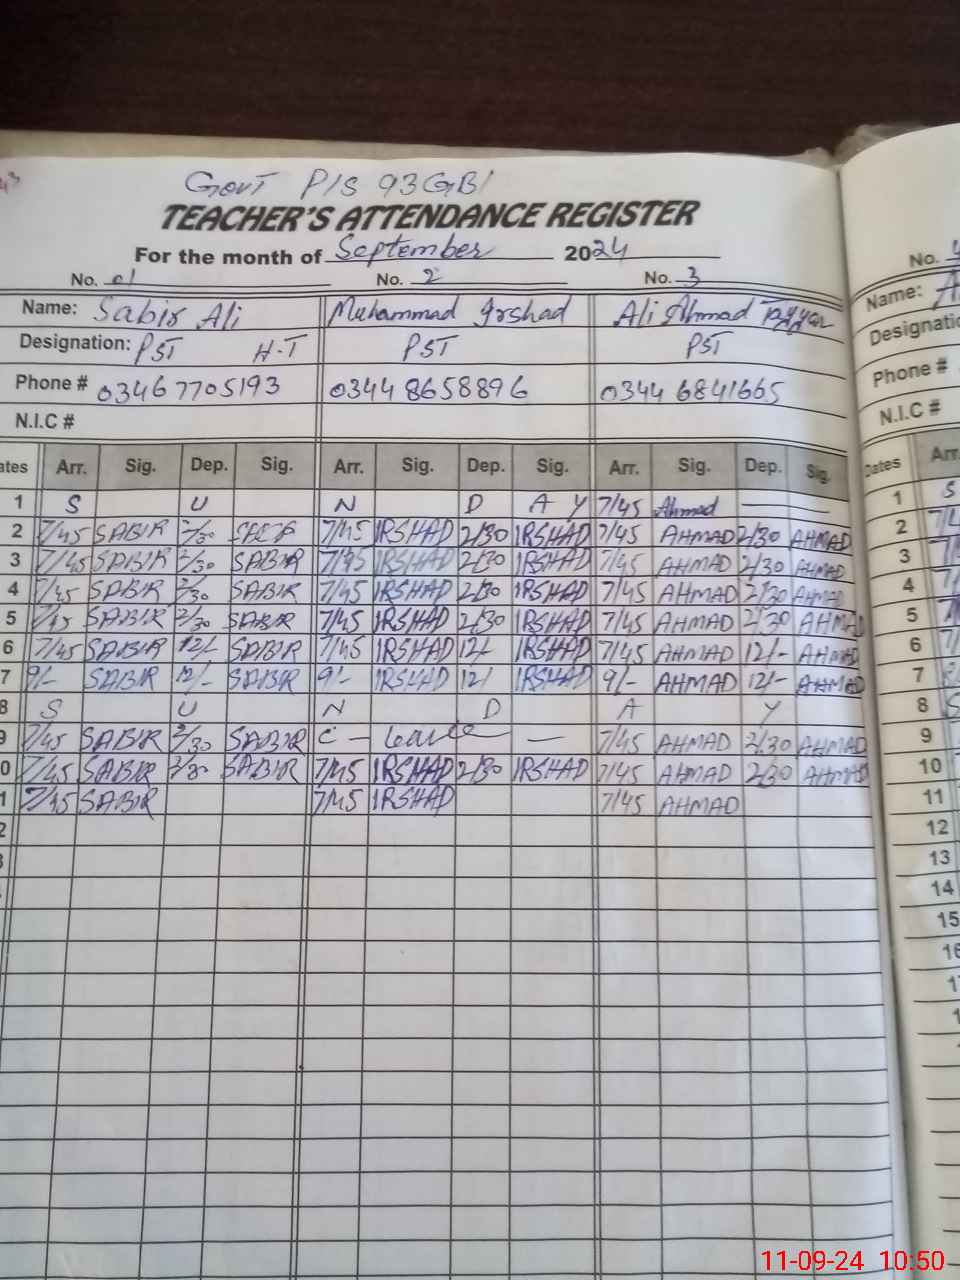 Govt P/S 93GB
TEACHER'S ATTENDANCE REGISTER
For the month of September 2024
No. 01 No. 2 No. 3
Name: Sabir Ali Muhammad Irshad Ali Ahmad Tayyar
Designation: PST H-T PST PST
Phone # 0346 7705193 0344 8658896 0344 6841665
N.I.C #
ates Arr. Sig. Dep. Sig. Arr. Sig. Dep. Sig. Arr. Sig. Dep. Sig.
1 S U N D A Y 7/45 Ahmad
2 7/45 SABIR 2/30 7/45 IRSHAD 2/30 IRSHAD 7/45 AHMAD 2/30 AHMAD
3 7/45 SABIR 2/30 SABIR 7/45 IRSHAD 2/30 IRSHAD 7/45 AHMAD 2/30 AHMAD
4 7/45 SABIR 2/30 SABIR 7/45 IRSHAD 2/30 IRSHAD 7/45 AHMAD 2/30 AHMAD
5 7/45 SABIR 2/30 SABIR 7/45 IRSHAD 2/30 IRSHAD 7/45 AHMAD 2/30 AHMAD
6 7/45 SABIR 12/- SABIR 7/45 IRSHAD 12/- IRSHAD 7/45 AHMAD 12/- AHMAD
7 9/- SABIR 12/- SABIR 9/- IRSHAD 12/ IRSHAD 9/- AHMAD 12/- AHMAD
8 S U N D A Y
9 7/45 SABIR 2/30 SABIR C - Leave - 7/45 AHMAD 2/30 AHMAD
0 7/45 SABIR 2/30 SABIR 7/45 IRSHAD 2/30 IRSHAD 7/45 AHMAD 2/30 AHMAD
1 7/45 SABIR 7/45 IRSHAD 7/45 AHMAD
2
3
No. 4
Name: A
Designatio
Phone #
N.I.C #
Dates Arr.
1 S
2 7/4
3
4
5
6
7
8 S
9
10
11
12
13
14
15
16
11-09-24 10:50